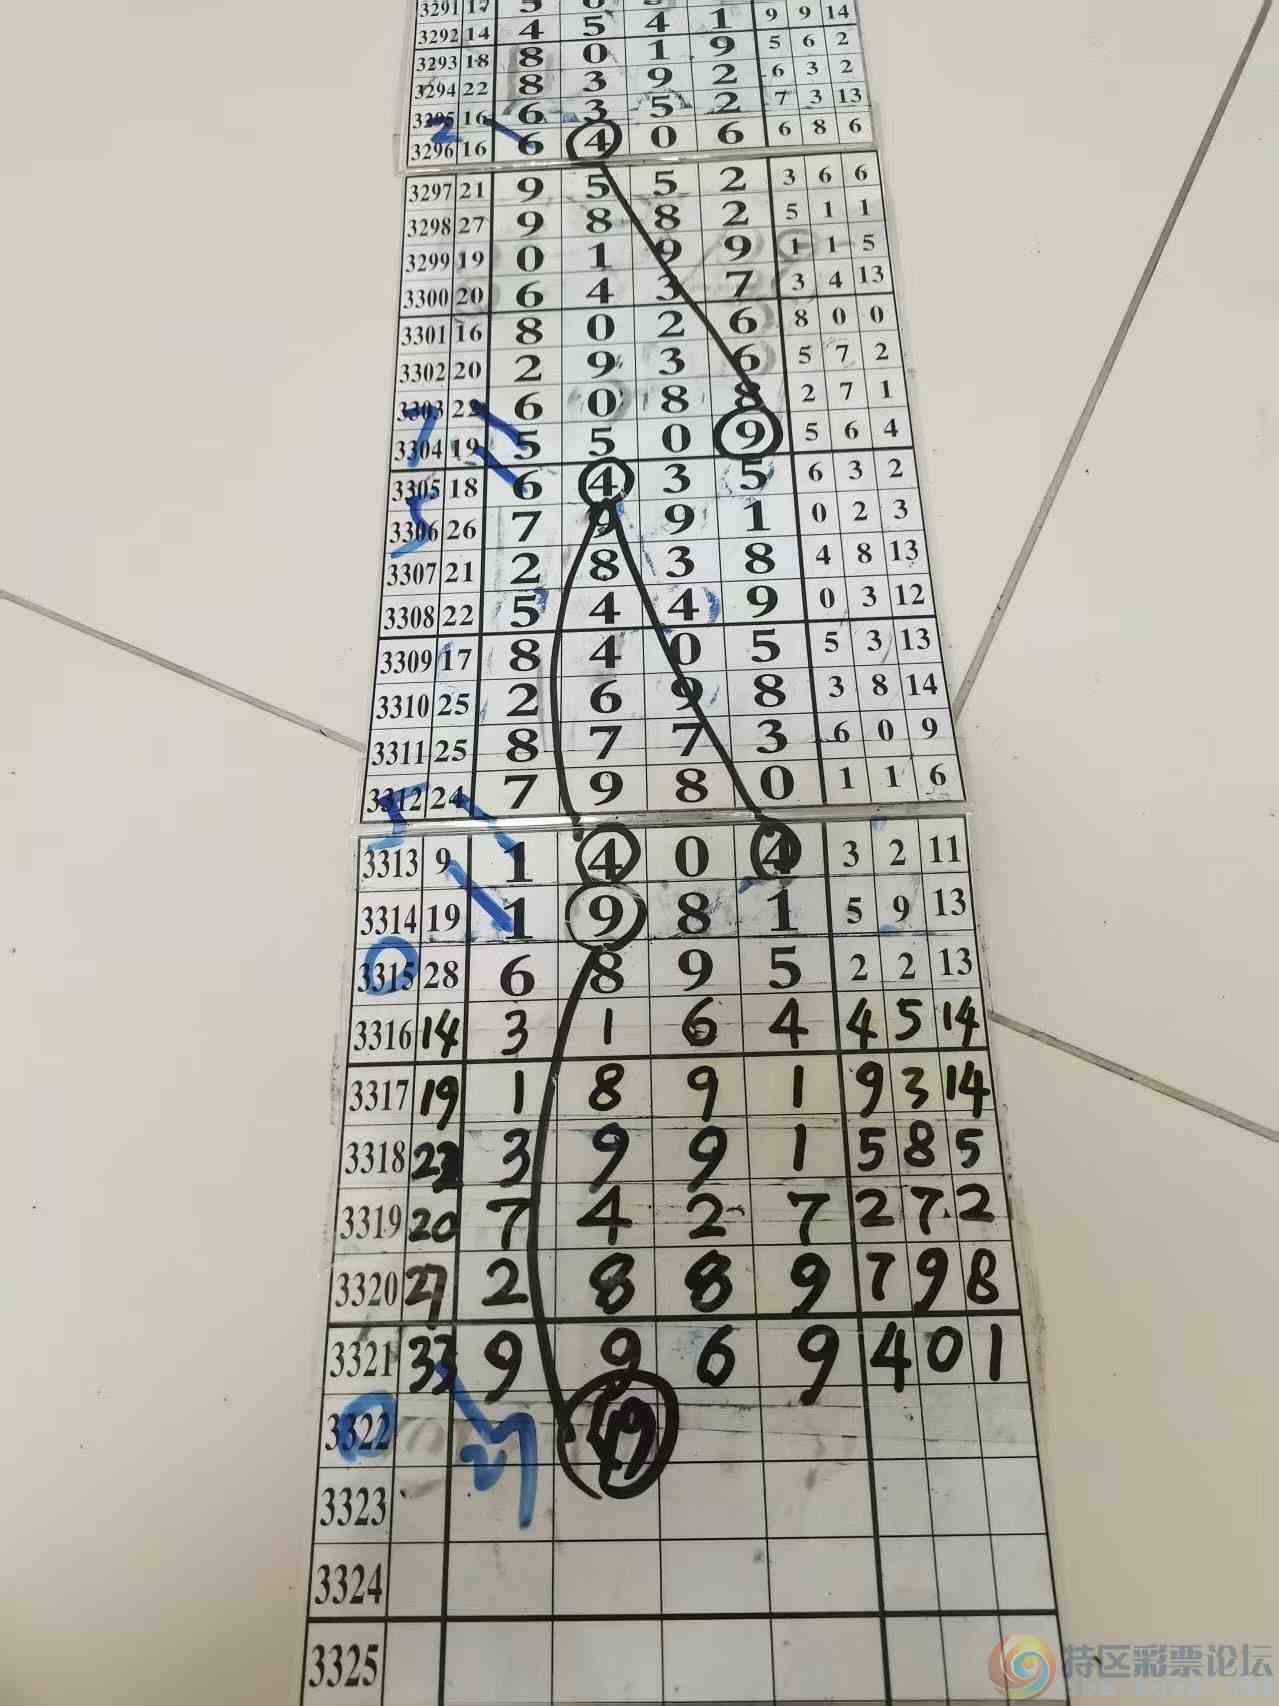 3291 17 5 0
3292 14 4 5 4 1 9 9 14
3293 18 8 0 1 9 5 6 2
3294 22 8 3 9 2 6 3 2
3295 16 6 3 5 2 7 3 13
3296 16 6 4 0 6 6 8 6
3297 21 9 5 5 2 3 6 6
3298 27 9 8 8 2 5 1 1
3299 19 0 1 9 9 1 1 5
3300 20 6 4 3 7 3 4 13
3301 16 8 0 2 6 8 0 0
3302 20 2 9 3 6 5 7 2
3303 22 6 0 8 8 2 7 1
3304 19 5 5 0 9 5 6 4
3305 18 6 4 3 5 6 3 2
3306 26 7 9 9 1 0 2 3
3307 21 2 8 3 8 4 8 13
3308 22 5 4 4 9 0 3 12
3309 17 8 4 0 5 5 3 13
3310 25 2 6 9 8 3 8 14
3311 25 8 7 7 3 6 0 9
3312 24 7 9 8 0 1 1 6
3313 9 1 4 0 4 3 2 11
3314 19 1 9 8 1 5 9 13
3315 28 6 8 9 5 2 2 13
3316 14 3 1 6 4 4 5 14
3317 19 1 8 9 1 9 3 14
3318 22 3 9 9 1 5 8 5
3319 20 7 4 2 7 2 7 2
3320 27 2 8 8 9 7 9 8
3321 33 9 9 6 9 4 0 1
3322 49
3323
3324
3325
特区彩票论坛